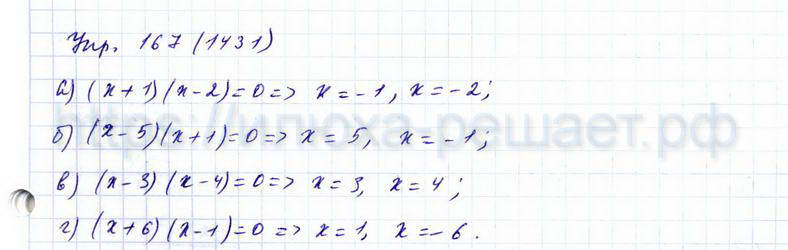 Упр. 167 (1431)
а) (x+1)(x-2)=0 => x=-1, x=-2;
б) (x-5)(x+1)=0 => x=5, x=-1;
в) (x-3)(x-4)=0 => x=3, x=4;
г) (x+6)(x-1)=0 => x=1, x=-6.
http://илюха-решает.рф